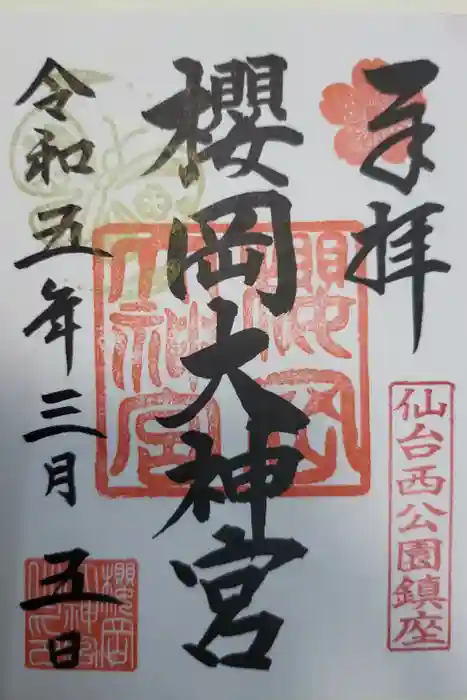 奉拝
仙台西公園鎮座
櫻岡大神宮
櫻岡大神宮
令和五年三月
五日